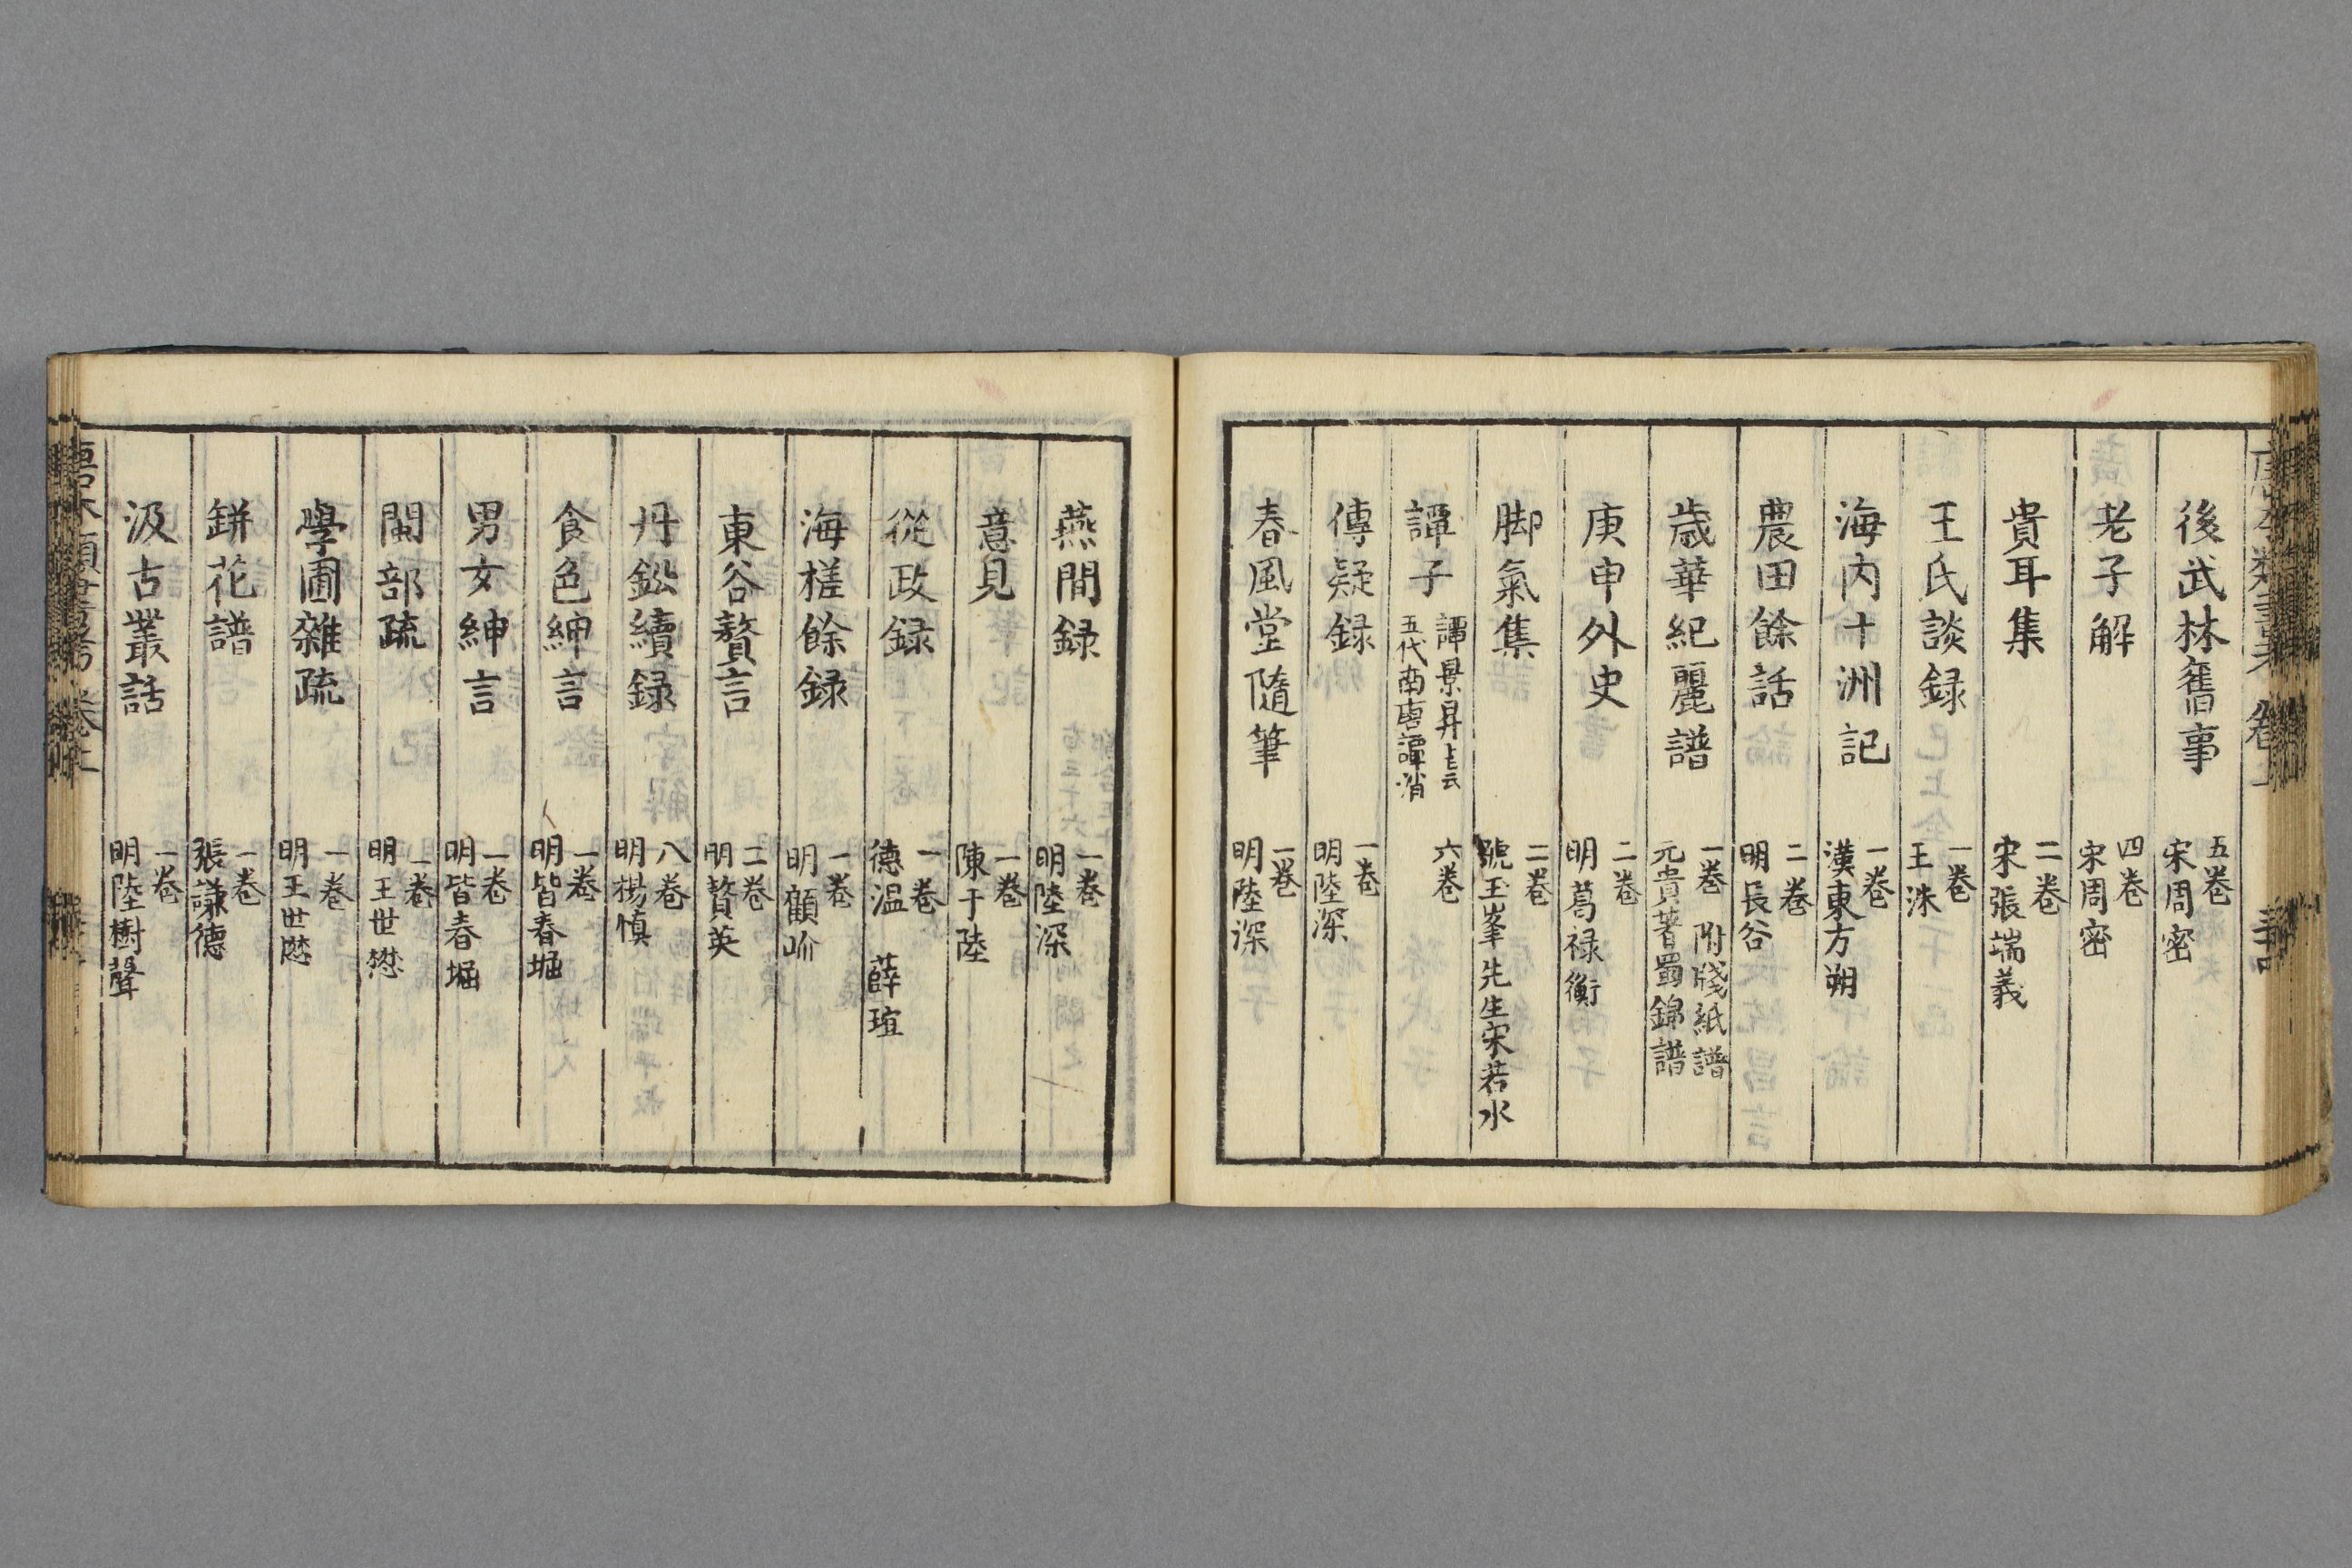 後武林舊事 五卷 宋周密
老子解 四卷 宋周密
貴耳集 二卷 宋張端義
王氏談録 一卷 王洙
海内十洲記 一卷 漢東方朔
農田餘話 二卷 明長谷
歳華紀麗譜 一卷 附牋紙譜 元貴著蜀錦譜
庚申外史 二卷 明葛禄衡
脚氣集 二卷 號玉峯先生宋若水
譚子 譚景昇 五代南唐譚峭 六卷
傳疑録 一卷 明陸深
春風堂隨筆 一卷 明陸深
燕間録 一卷 明陸深
意見 一卷 陳于陸
從政録 一卷 德温 薛瑄
海槎餘録 一卷 明顧岕
東谷贅言 二卷 明贅英
丹鉛續録 八卷 明楊慎
食色紳言 一卷 明皆春堀
男女紳言 一卷 明皆春堀
閩部疏 一卷 明王世懋
學圃雜疏 一卷 明王世懋
缾花譜 一卷 張謙德
汲古叢話 一卷 明陸樹聲